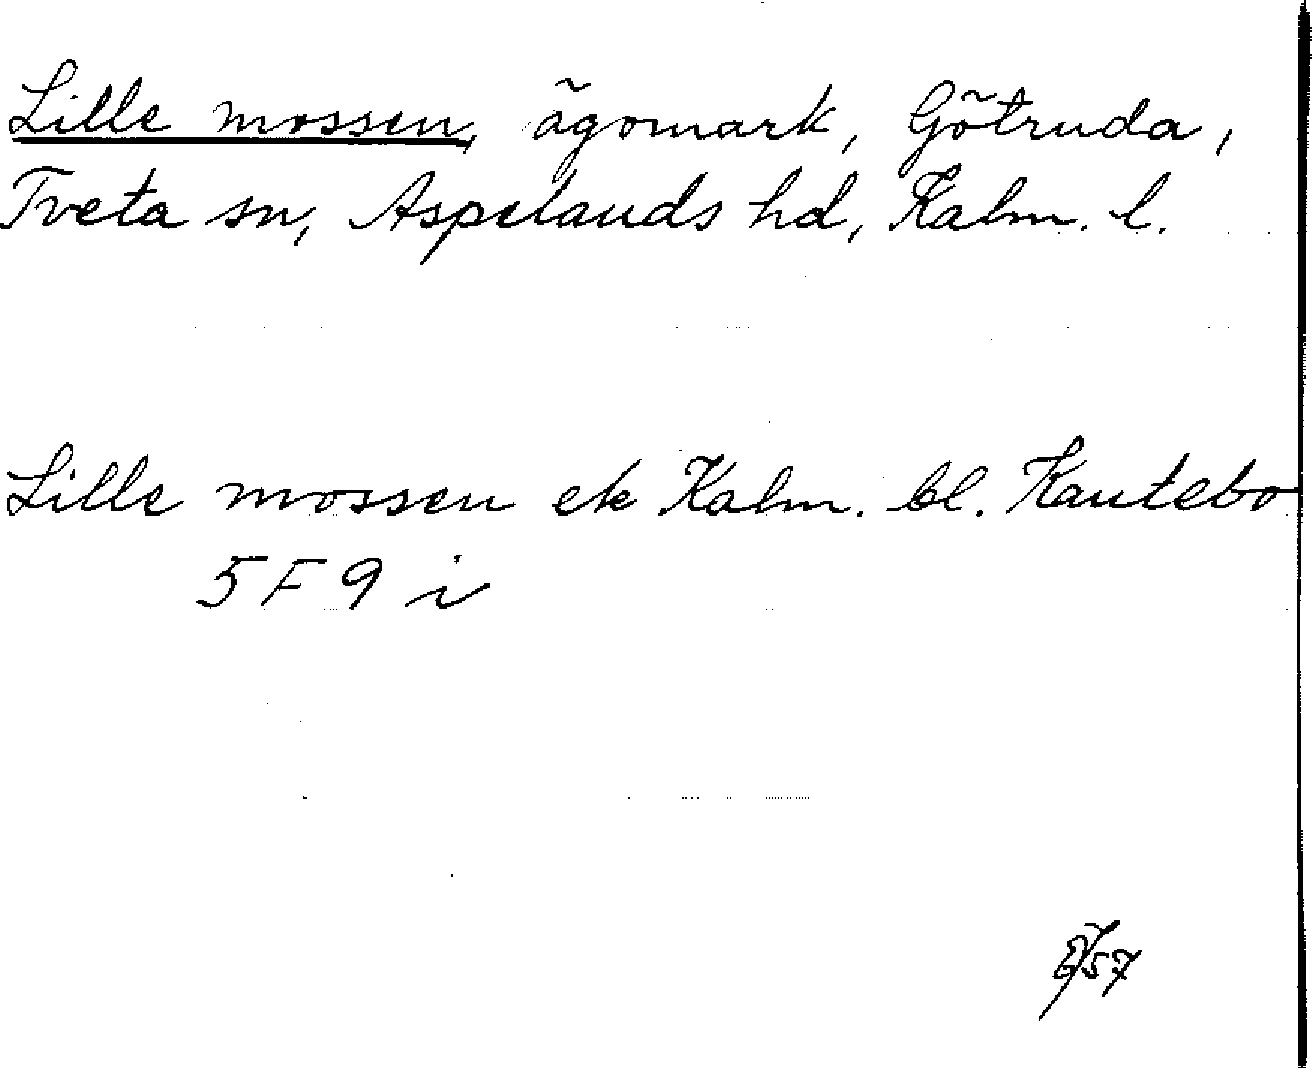 Lille mossen, ägomark, Götruda,
Tveta sn, Aspelands hd, Kalm. l.
Lille mossen ek Kalm. bl. Kantebo
5 F 9 i